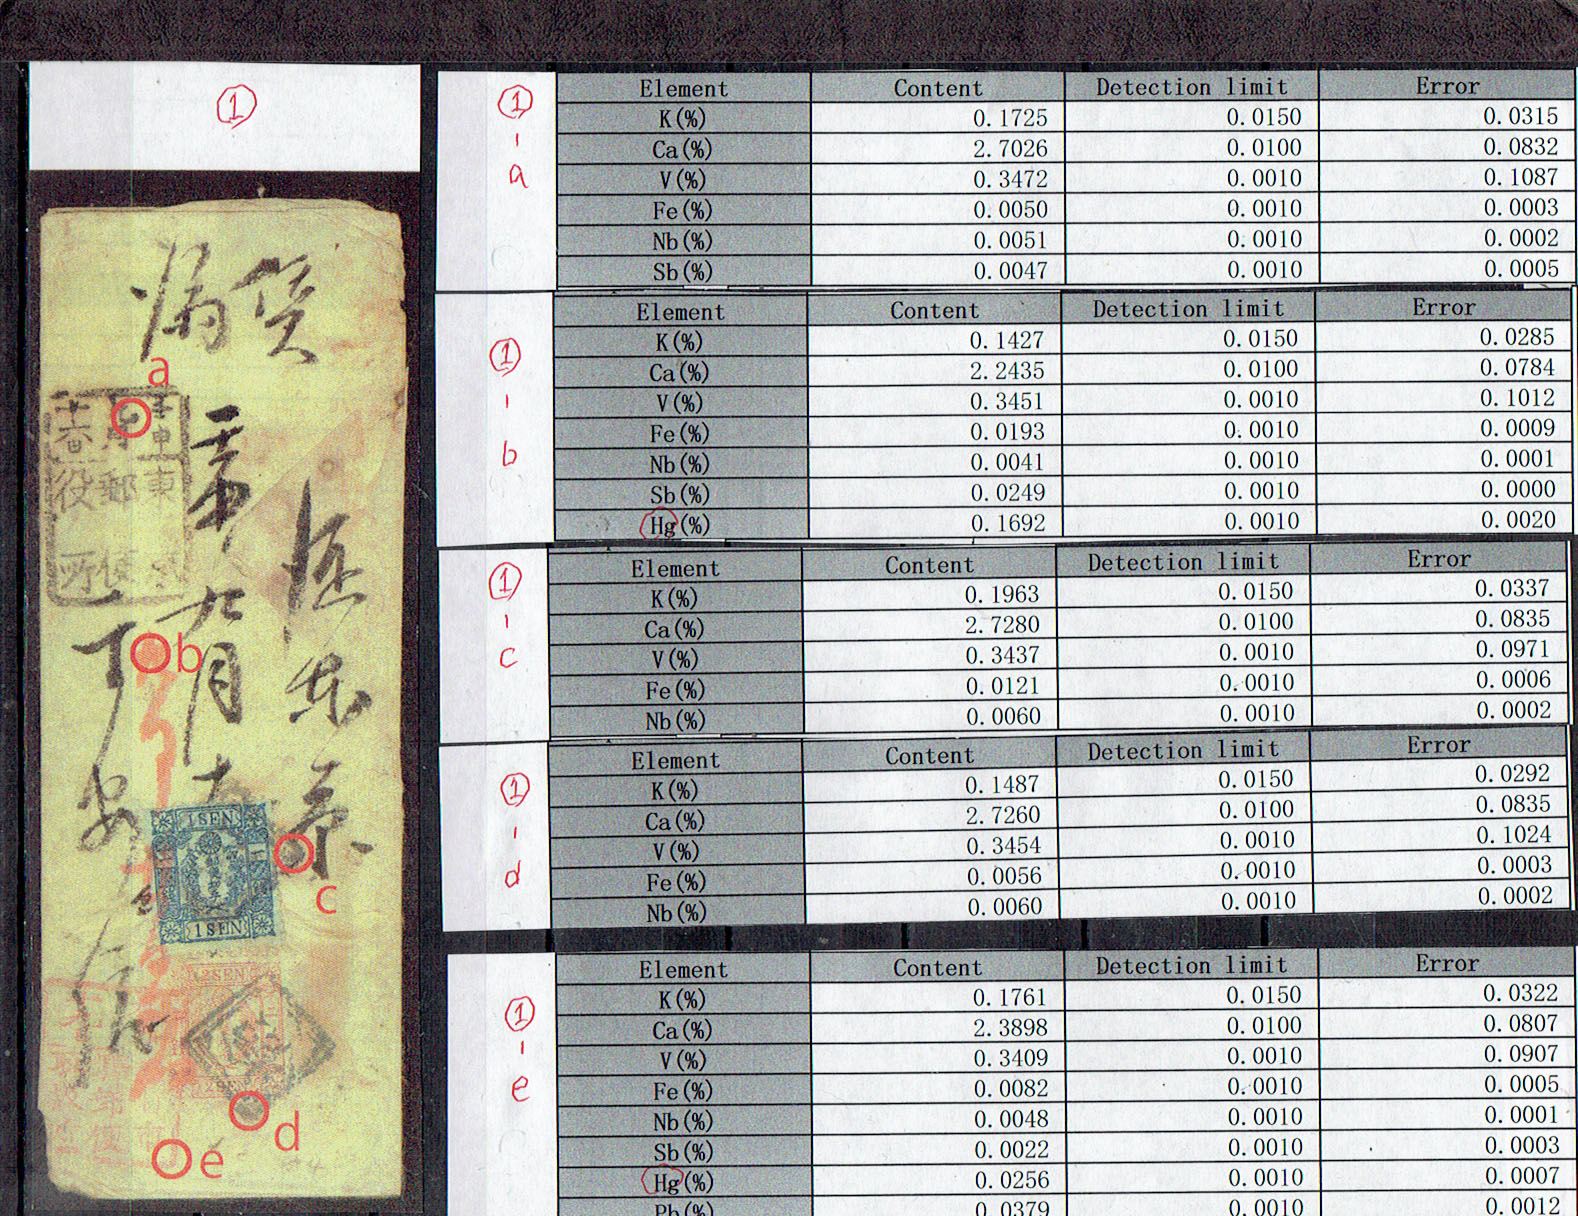 ①
①
-
a
Element Content Detection limit Error
K(%) 0.1725 0.0150 0.0315
Ca(%) 2.7026 0.0100 0.0832
V(%) 0.3472 0.0010 0.1087
Fe(%) 0.0050 0.0010 0.0003
Nb(%) 0.0051 0.0010 0.0002
Sb(%) 0.0047 0.0010 0.0005
①
-
b
Element Content Detection limit Error
K(%) 0.1427 0.0150 0.0285
Ca(%) 2.2435 0.0100 0.0784
V(%) 0.3451 0.0010 0.1012
Fe(%) 0.0193 0.0010 0.0009
Nb(%) 0.0041 0.0010 0.0001
Sb(%) 0.0249 0.0010 0.0000
Hg(%) 0.1692 0.0010 0.0020
①
-
c
Element Content Detection limit Error
K(%) 0.1963 0.0150 0.0337
Ca(%) 2.7280 0.0100 0.0835
V(%) 0.3437 0.0010 0.0971
Fe(%) 0.0121 0.0010 0.0006
Nb(%) 0.0060 0.0010 0.0002
①
-
d
Element Content Detection limit Error
K(%) 0.1487 0.0150 0.0292
Ca(%) 2.7260 0.0100 0.0835
V(%) 0.3454 0.0010 0.1024
Fe(%) 0.0056 0.0010 0.0003
Nb(%) 0.0060 0.0010 0.0002
①
-
e
Element Content Detection limit Error
K(%) 0.1761 0.0150 0.0322
Ca(%) 2.3898 0.0100 0.0807
V(%) 0.3409 0.0010 0.0907
Fe(%) 0.0082 0.0010 0.0005
Nb(%) 0.0048 0.0010 0.0001
Sb(%) 0.0022 0.0010 0.0003
Hg(%) 0.0256 0.0010 0.0007
Pb(%) 0.0379 0.0010 0.0012
a
b
c
d
e
九月
郵便
役所
1 SEN
1 SEN
2 SEN